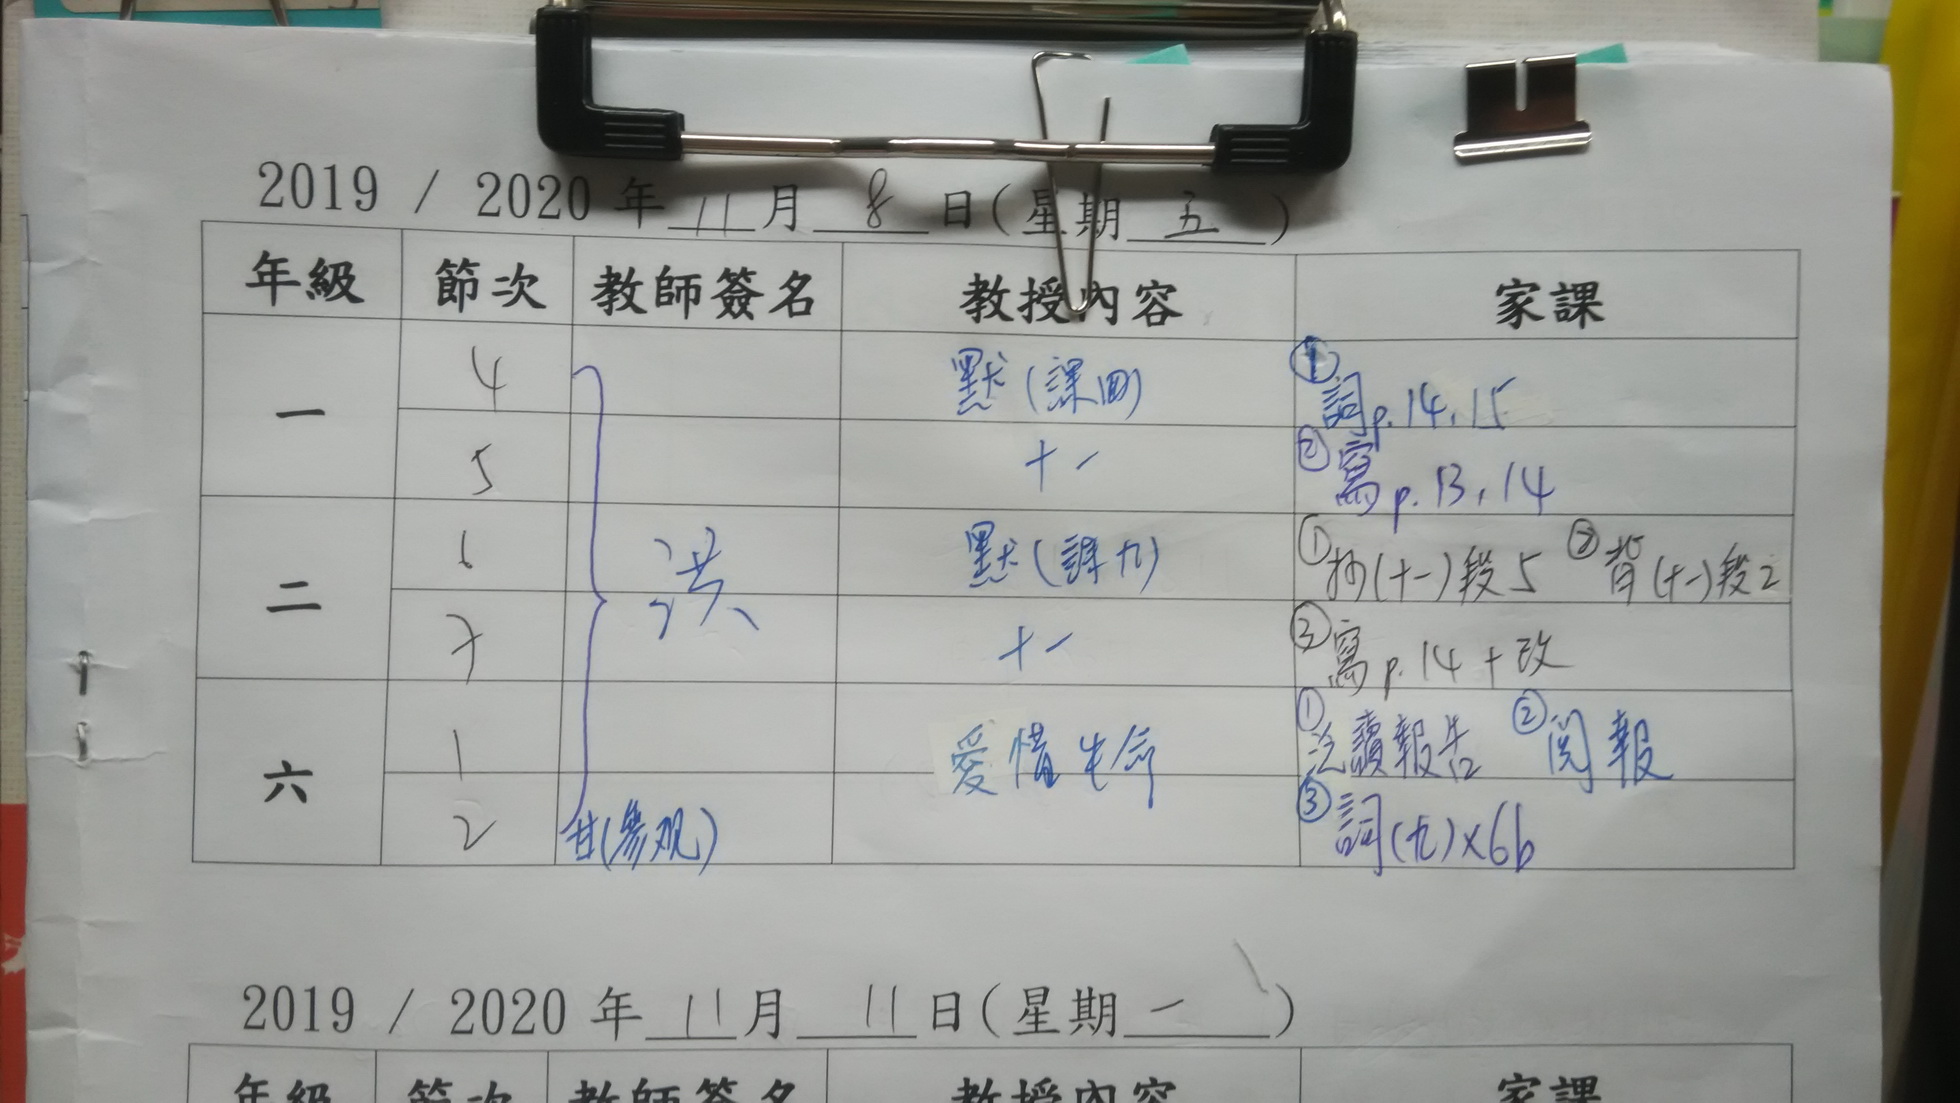 2019 / 2020 年 11 月 8 日(星期 五 )
年級 節次 教師簽名 教授內容 家課
一 4 默(課四) ① 詞p.14,15
5 十一 ② 寫p.13,14
二 6 洪 默(課九) ①抄(十一)段5 ②背(十一)段2
7 十一 ③寫p.14+改
六 1 愛惜生命 ①泛讀報告 ②閱報
2 甘(參观) ③詞(九)x6b
2019 / 2020 年 11 月 11 日(星期 一 )
年級 節次 教師簽名 教授內容 家課